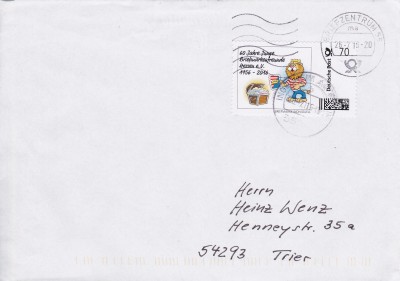 BRIEFZENTRUM
60 Jahre Junge
Briefmarkenfreunde
Hessen e.V.
1956 - 2016
70
Deutsche Post
Herrn
Heinz Wenz
Henneystr. 35a
54293 Trier